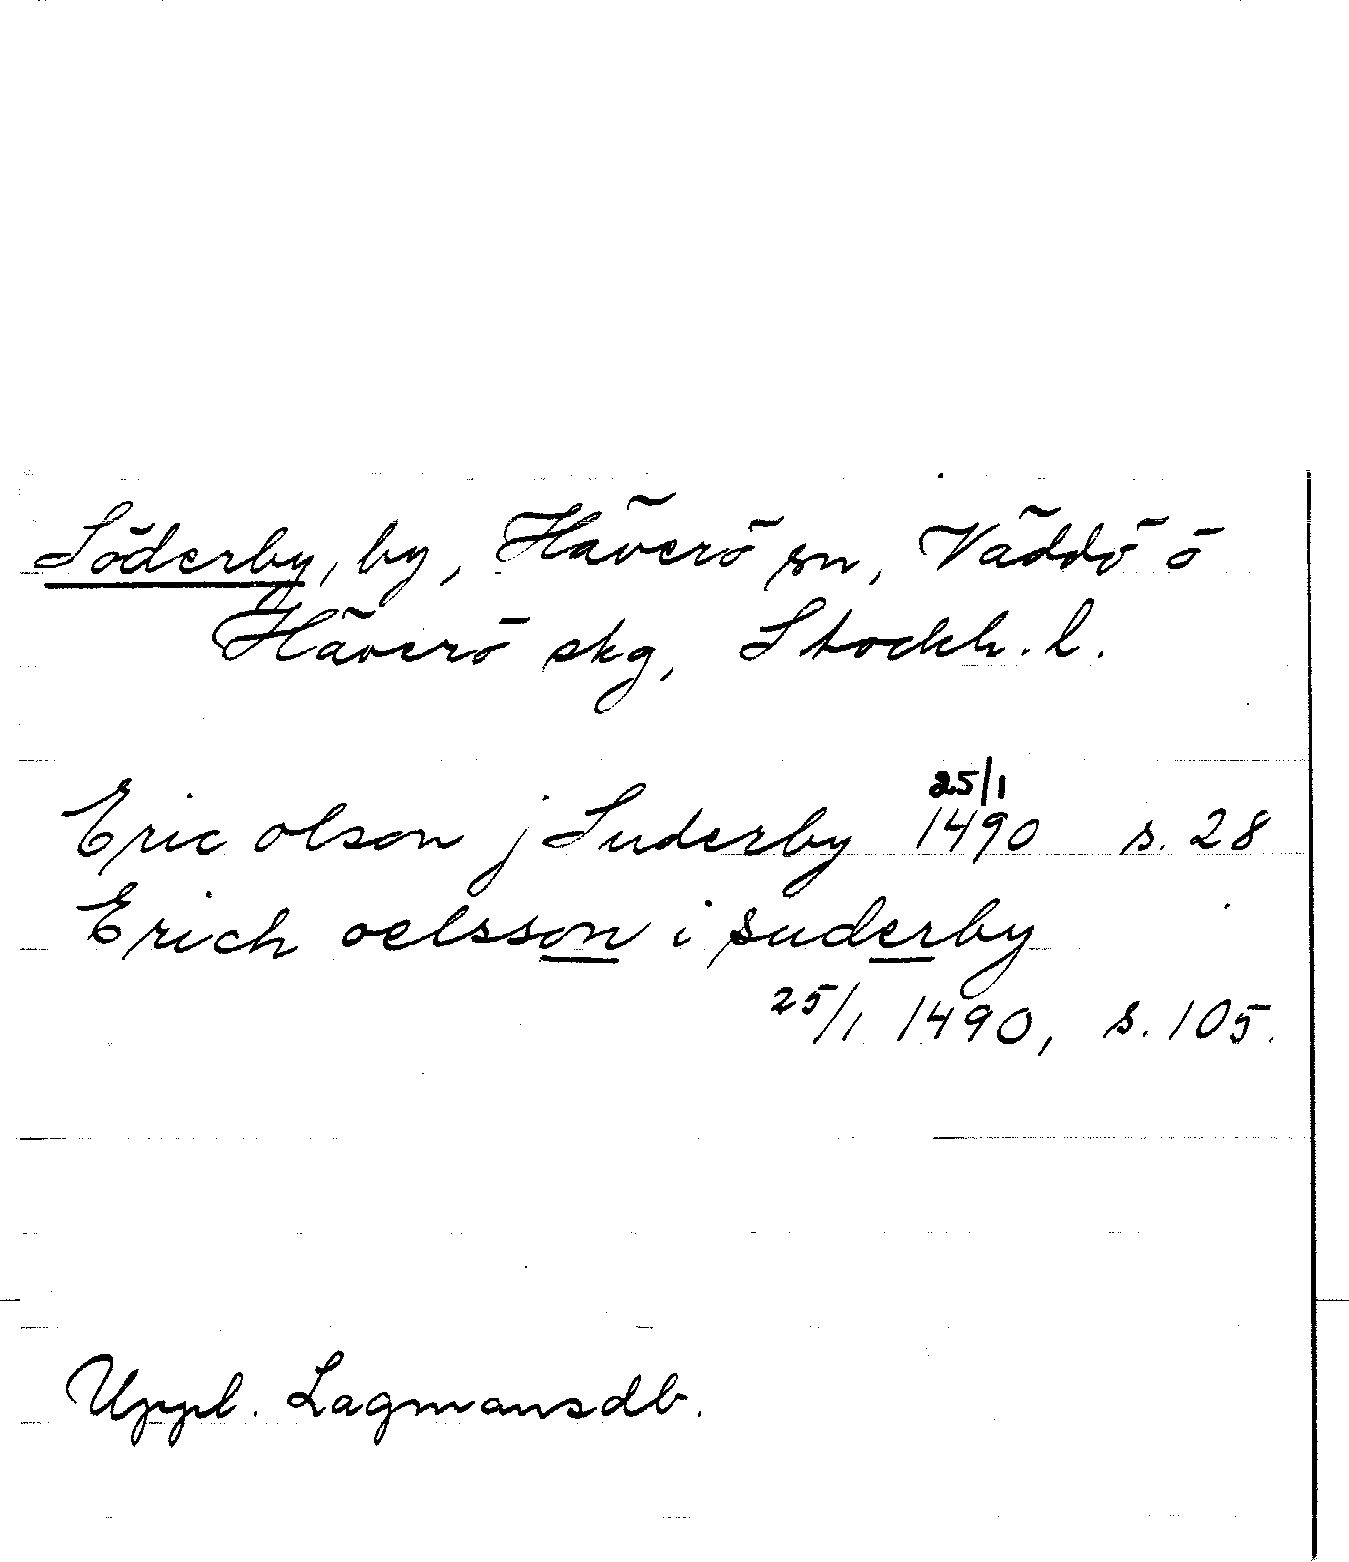 Söderby, by, Häverö sn, Väddö o
Häverö skg, Stockh. l.
25/1
Eric olson j Suderby 1490 s. 28
Erich oelsson i suderby
25/1 1490, s. 105.
Uppl. Lagmansdb.